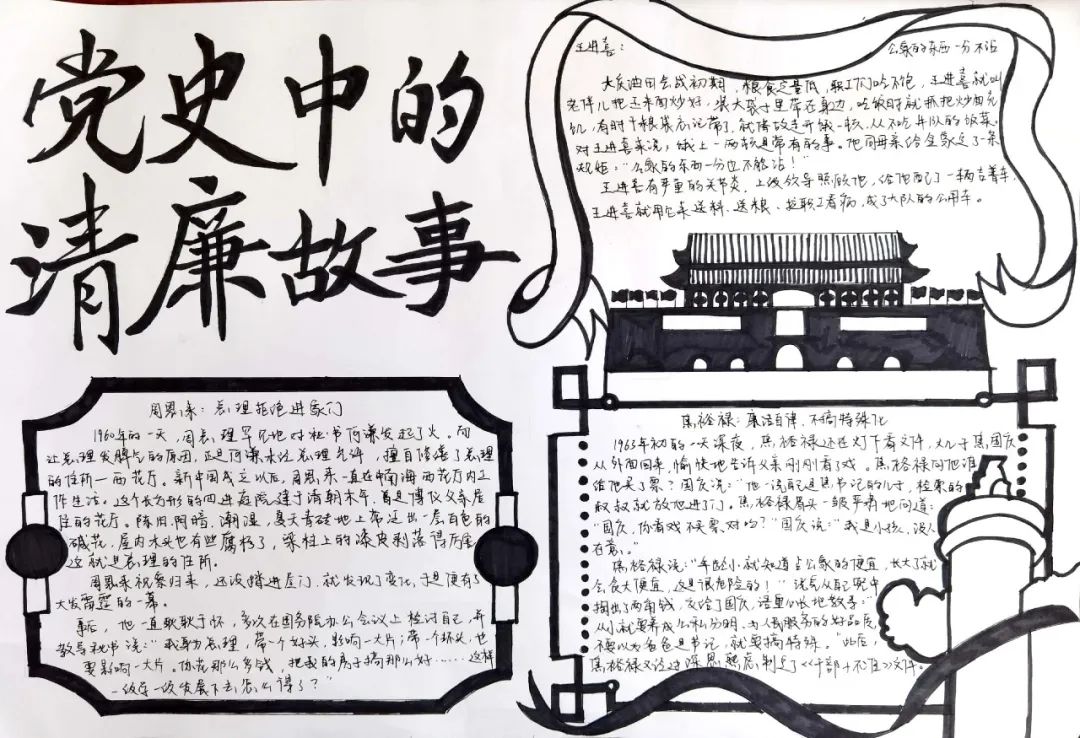 党史中的
清廉故事
王进喜： 公家的东西一分不沾
大庆油田会战初期，粮食定量低，职工们吃不饱，王进喜就叫
老伴儿把玉米面炒好，装大袋子里带在身边，吃饭时就抓把炒面充
饥，有时干粮袋忘记带了，就借故走开饿一顿，从不吃井队的饭菜。
对王进喜来说，饿上一两顿是常有的事。他同母亲给全家定了一条
规矩：“公家的东西一分也不能沾！”
王进喜有严重的关节炎，上级领导照顾他，给他配了一辆吉普车，
王进喜就用它来送料、送粮、拉职工看病，成了大队的公用车。
周恩来：总理拒绝进家门
1960年的一天，周总理罕见地对秘书何谦发起了火。而
让总理发脾气的原因，正是何谦未经总理允许，擅自修缮了总理
的住所一西花厅。新中国成立以后，周恩来一直在中南海西花厅内工
作生活。这个长方形的四进庭院建于清朝末年，曾是溥仪父亲居
住的花厅。陈旧、阴暗、潮湿，夏天青砖地上常泛出一层白色的
碱花，屋内木头也有些腐朽了，梁柱上的漆皮剥落得厉害，
这就是总理的住所。
周恩来视察归来，还没踏进屋门，就发现了变化，于是便有了
大发雷霆的一幕。
事后，他一直耿耿于怀，多次在国务院办公会议上检讨自己，并
教导秘书说：“我身为总理，带一个好头，影响一大片；带一个坏头，也
要影响一大片。你花那么多钱，把我的房子搞那么好……这样
一级学一级发展下去怎么得了？”
焦裕禄：廉洁自律，不搞特殊化
1963年初的一天深夜，焦裕禄还在灯下看文件，大儿子焦国庆
从外面回来，愉快地告诉父亲刚刚看了戏。焦裕禄问他谁
给他买了票？国庆说：“他一说自己是焦书记的儿子，检票的
叔叔就放他进了门。焦裕禄眉头一皱严肃地问道：
“国庆，你看戏没票，对吗？”国庆说：“我是小孩，没人
在意。”
焦裕禄说：“年纪小就知道占公家的便宜，长大了就
会贪大便宜，这是很危险的！”说完从自己兜中
掏出了两角钱，交给了国庆，语重心长地教导：“
从小就要养成公私分明、为人民服务的好品质，
不要以为爸爸是书记，就要搞特殊。”此后，
焦裕禄又经过深思熟虑，制定了《干部十不准》文件。